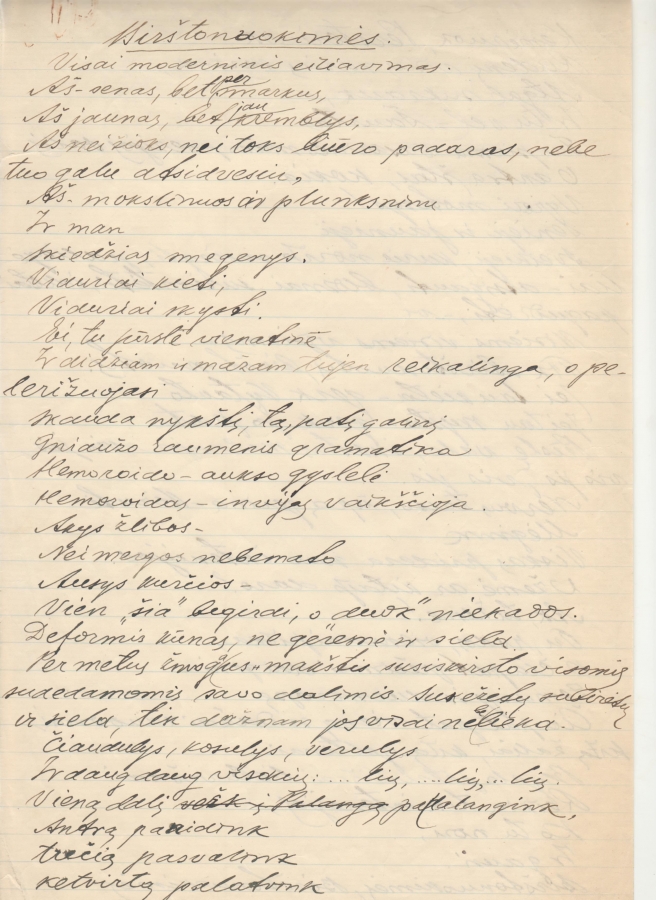 Birštonuokomės.
Visai moderninis eiliavimas.
Aš-senas, bet per markus,
Aš jaunas, bet jau
Aš nei šioks, nei toks būro padaras, nebe
tuo galu atsidvesiu,
Aš- mokslinuos ar plunksninu
Ir man
skiedžias smegenys.
Viduriai kieti,
Viduriai skysti.
Ei, tu pūrslė vienatinė
Ir didžiam ir mažam reikalinga, o pe-
lerižuojasi
skauda nykštį, tą, patį galinį
Gniaužo raumenis gramatika
Hemoroido- aukso gyslelė
Hemoroidas- invijos vaikščioja.
Akys žlibos-
Nei mergos nebemato
Ausys kurčios-
Vien "šia" begirdi, o "duok" niekados.
Deformis kūnas, ne geresnė ir siela.
Per metus žmogaus makštis susiskirsto visomis
sudedamomis savo dalimis.
ir siela, tik dažnam jos visai nebelieka.
Čiaudulys, kosulys, verulys
Ir daug daug visokių: ... lių, .... lių, ... lių.
Vieną dalį vežk į Palangą papalangink,
Antrą panidink
trečią pasvalink
ketvirtą palatvink